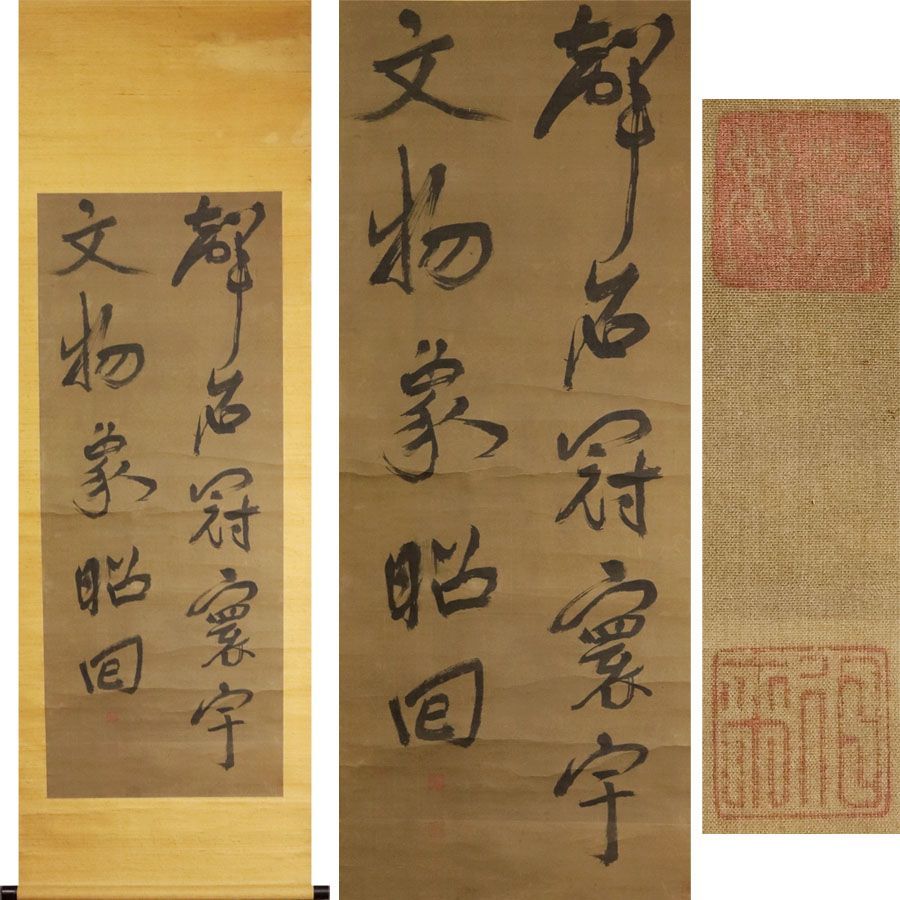 聲名冠寰宇
文物象昭回
聲名冠寰宇
文物象昭回